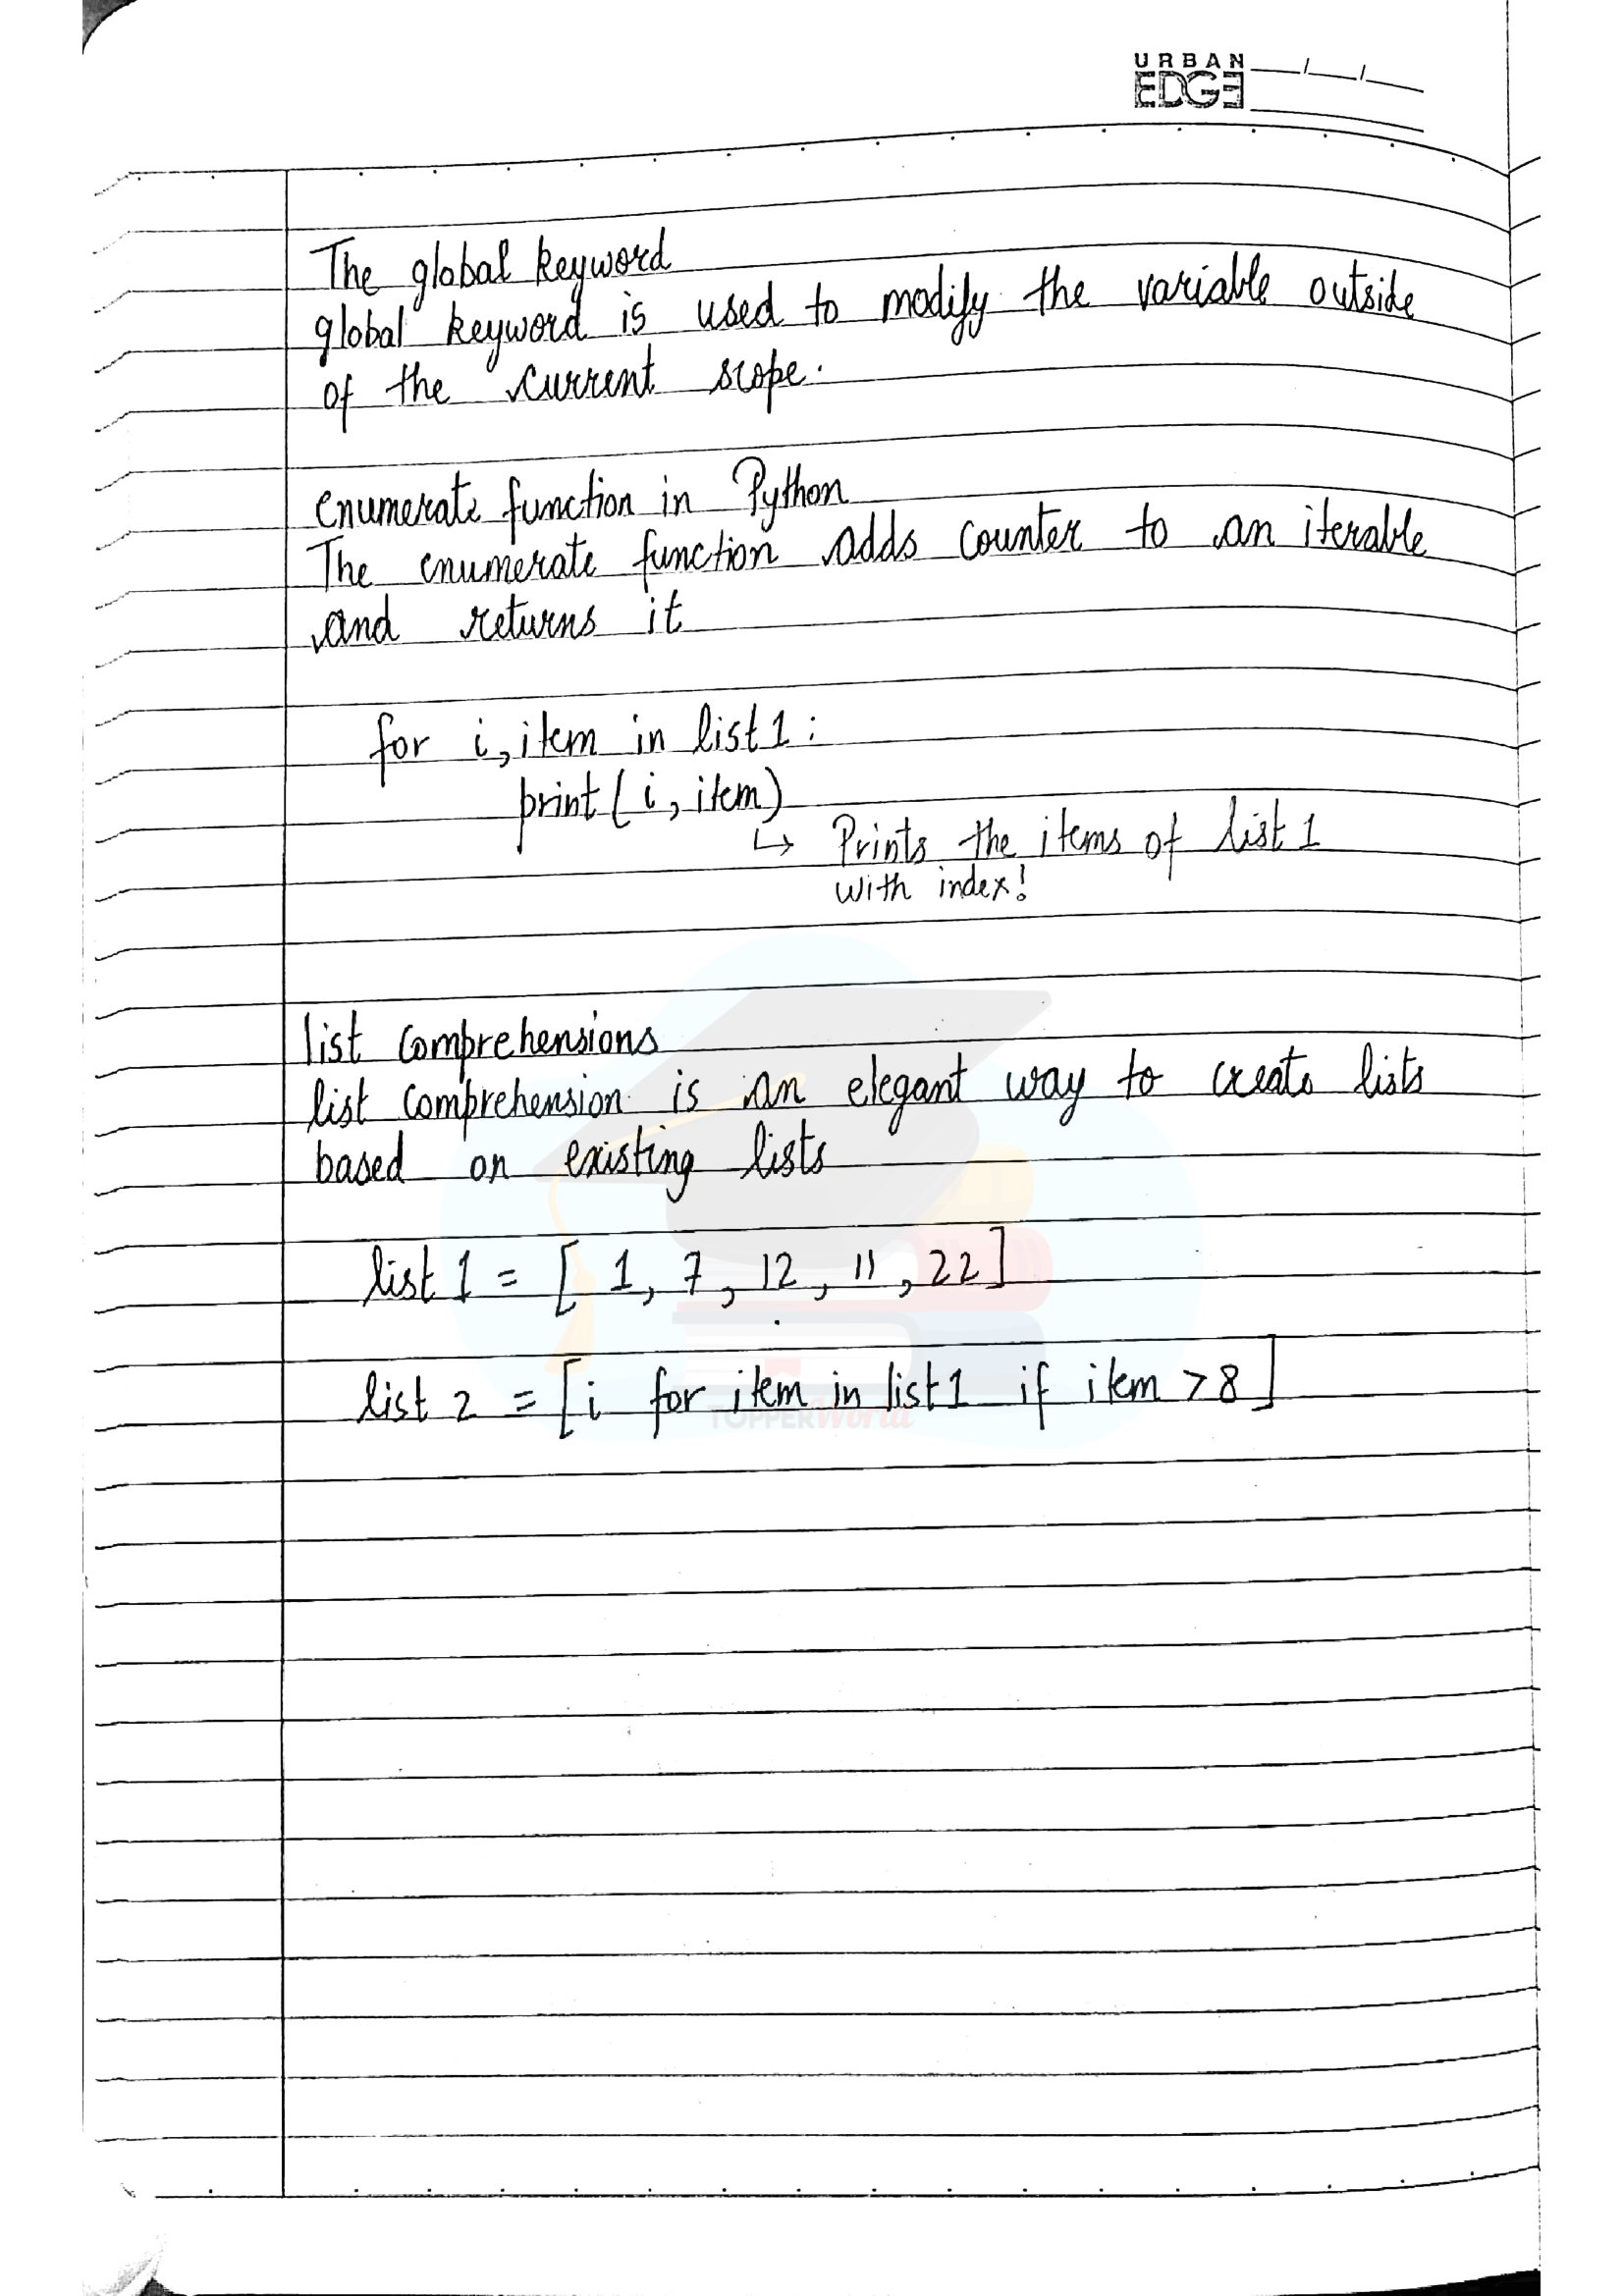 URBAN
EDGE
The global keyword
global keyword is used to modify the variable outside
of the current scope.
enumerate function in Python
The enumerate function adds counter to an iterable
and returns it
for i, item in list1:
print(i, item)
↳ Prints the items of list 1
with index!
list comprehensions
list comprehension is an elegant way to create lists
based on existing lists
list 1 = [ 1, 7, 12, 11, 22]
list 2 = [i for item in list1 if item > 8]
TOPPERWorld